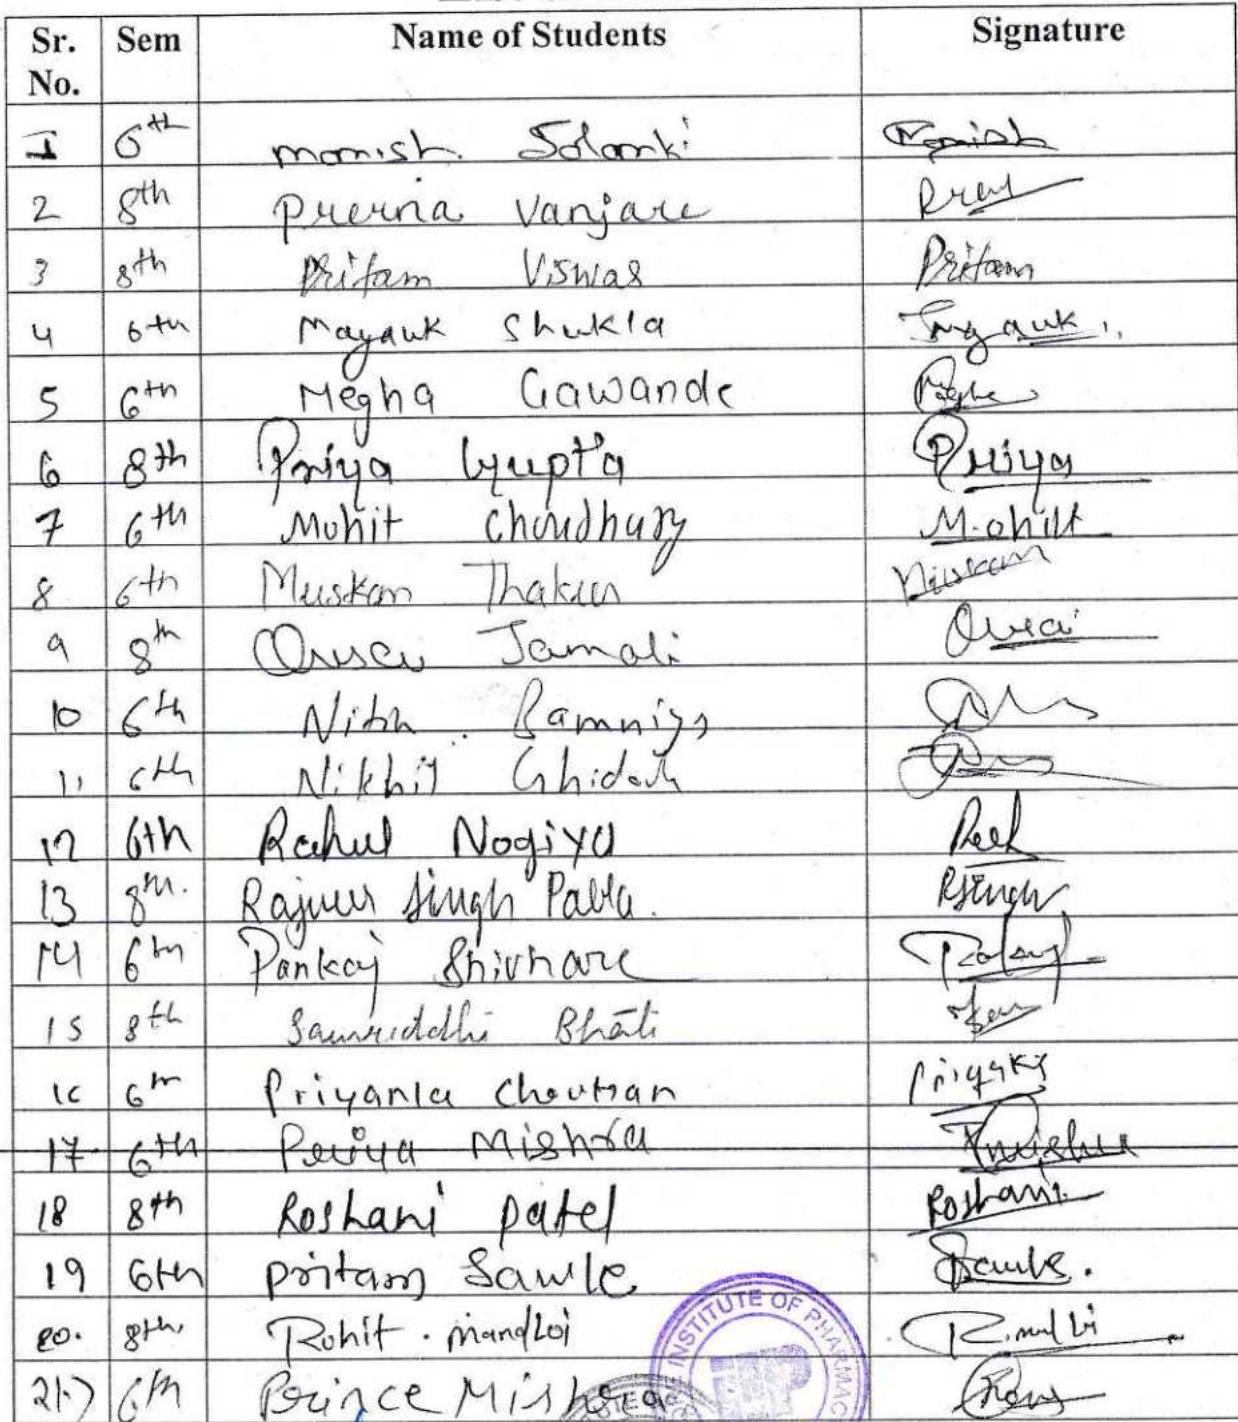 Sr. No. Sem Name of Students Signature
1 6th Monish Solanki Monish
2 8th Prerna Vanjare
3 8th Pritam Viswas Pritam
4 6th Mayank Shukla Mayank
5 6th Megha Gawande Megha
6 8th Priya Gupta Priya
7 6th Mohit Choudhary Mohit
8 6th Muskan Thakur Muskan
9 8th Jamali
10 6th Nitin Bamniya
11 6th Nikhil
12 6th Rahul Nogiya
13 8th Singh Pabla RSingh
14 6th Pankaj Shivhare
15 8th Samriddhi Bhati
16 6th Priyanka Chouhan
17. 6th Priya Mishra
18 8th Roshani Patel Roshani
19 6th Pritam Sawle Sawle.
20. 8th Rohit Mandloi
21) 6th Prince Mishra
INSTITUTE OF PHARMAC